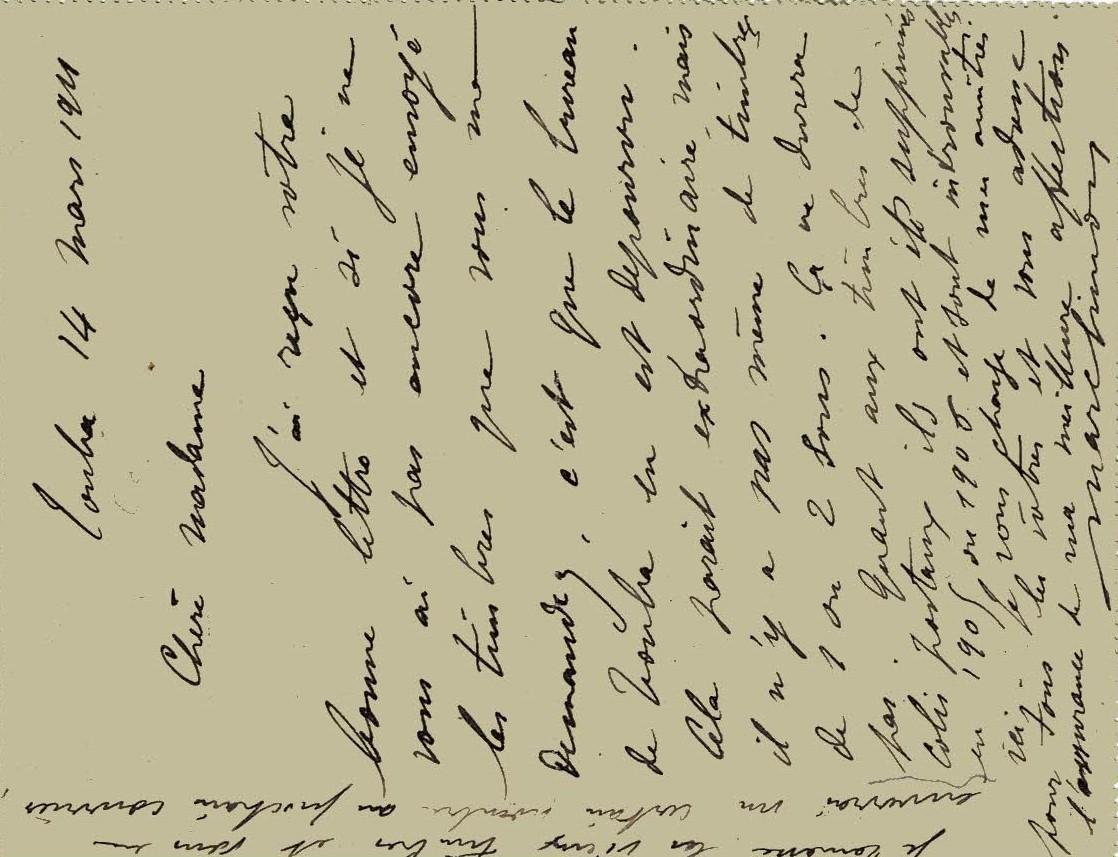 Touba 14 mars 1911
Chère madame
J'ai reçu votre
bonne lettre et si je ne
vous ai pas encore envoyé
les timbres que vous me
demandez, c'est que le bureau
de Touba en est dépourvu.
Cela parait extraordinaire mais
il n'y a pas même de timbres
de 1 ou 2 sous. Ça ne durera
pas. Quant aux timbres de
Colis postaux ils ont été supprimés
en 1905 ou 1906 et sont introuvables
ici. Je vous charge de mes amitiés
pour tous les vôtres et vous adresse
l'assurance de ma meilleure affection.
je ramasse les vieux timbres et vous en
enverrai un certain nombre au prochain courrier.